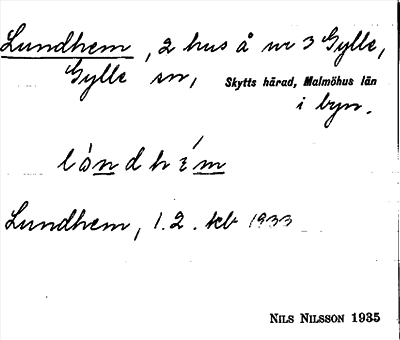 Lundhem, 2 hus å nr 3 Gylle,
Gylle sn, Skytts härad, Malmöhus län
i byn.
Lundhem, 1.2. kb 1933
NILS NILSSON 1935